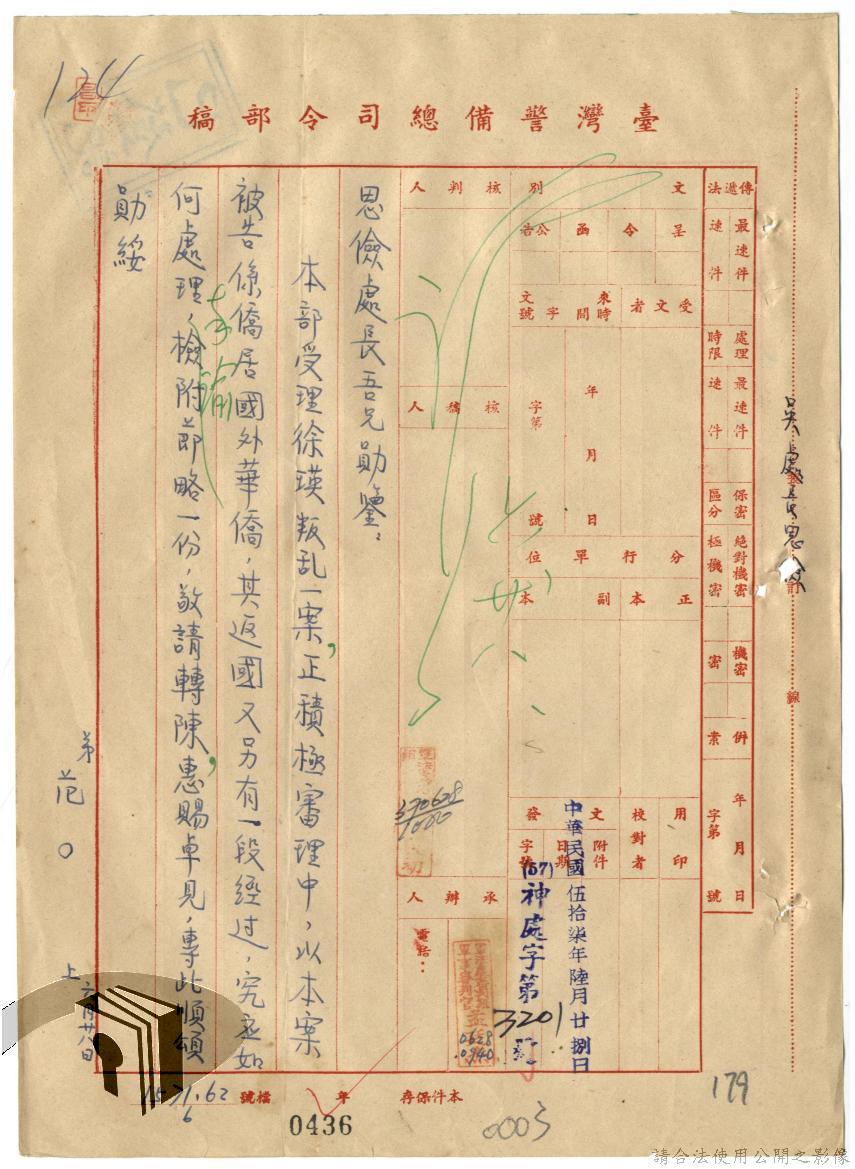 臺灣警備總司令部稿
傳遞法
最速件
速件
處理時限
最速件
速件
保密區分
絕對機密
極機密
機密
密
併案
年 月 日
字第 號
文別
呈
令
函
公告
受文者
來文
時間
字號
年 月 日
字第 號
分行單位
正本
副本
用印
校對者
發文
附件
日期
字號
中華民國伍拾柒年陸月廿捌日
(57)神處字第3201號
核判人
核稿人
承辦人
電話：
570628
1000
0628
0940
六 廿八、
思儉處長吾兄勛鑒：
本部受理徐瑛叛乱一案，正積極審理中，以本案
被告係僑居國外華僑，其返國又另有一段經过，究應如
何處理，檢附節略一份，敬請轉陳，惠賜卓見，專此順頌
勛綏
弟 范○ 上 六月廿八日
吳處長思儉
訂
線
本件保存 年
檔號 1571.62
6
0436
0003
179
124
請合法使用公開之影像